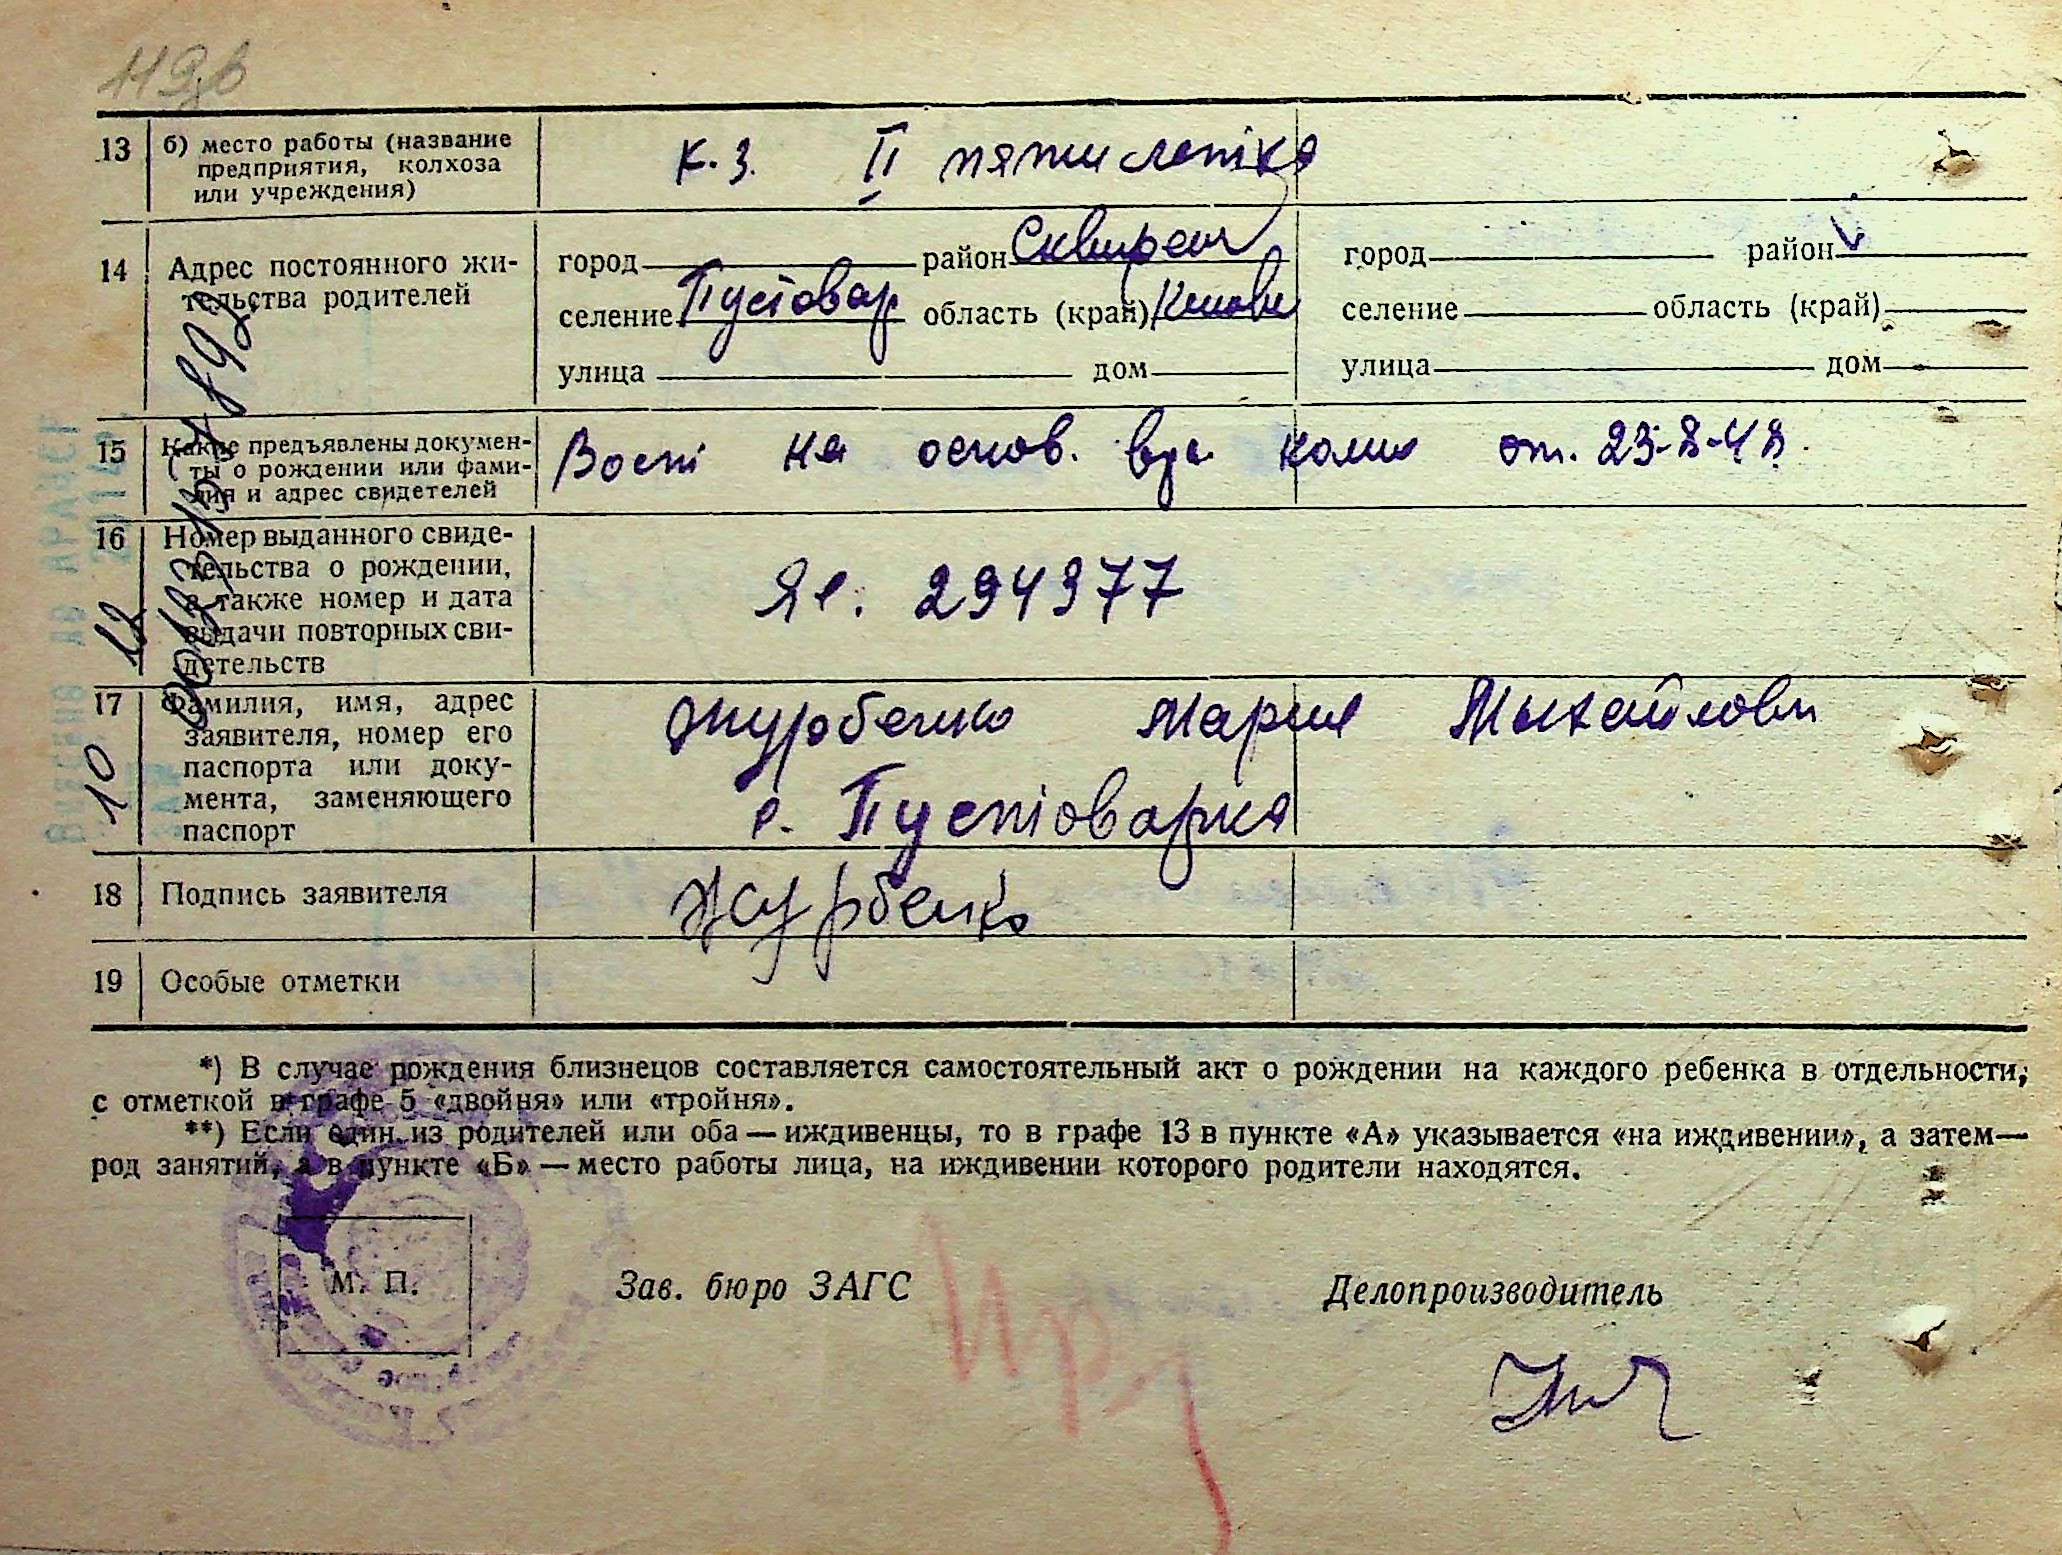 119 зв
13 б) место работы (название предприятия, колхоза или учреждения) к.з. II пятилетка
14 Адрес постоянного жи-
тельства родителей
город район Сквирськ
селение Пустовар область (край) Киевск
улица дом
город район
селение область (край)
улица дом
15 Какие предъявлены докумен-
ты о рождении или фами-
лия и адрес свидетелей
Вост на основ. врач комис от. 23-8-48.
16 Номер выданного свиде-
тельства о рождении,
а также номер и дата
выдачи повторных сви-
детельств
ЯС. 294977
17 Фамилия, имя, адрес
заявителя, номер его
паспорта или доку-
мента, заменяющего
паспорт
Журбенко Мария Михайловн
с. Пустоварка
18 Подпись заявителя Журбенко
19 Особые отметки
*) В случае рождения близнецов составляется самостоятельный акт о рождении на каждого ребенка в отдельности,
с отметкой в графе 5 «двойня» или «тройня».
**) Если один из родителей или оба — иждивенцы, то в графе 13 в пункте «А» указывается «на иждивении», а затем —
род занятий, а в пункте «Б» — место работы лица, на иждивении которого родители находятся.
М. П. Зав. бюро ЗАГС Делопроизводитель